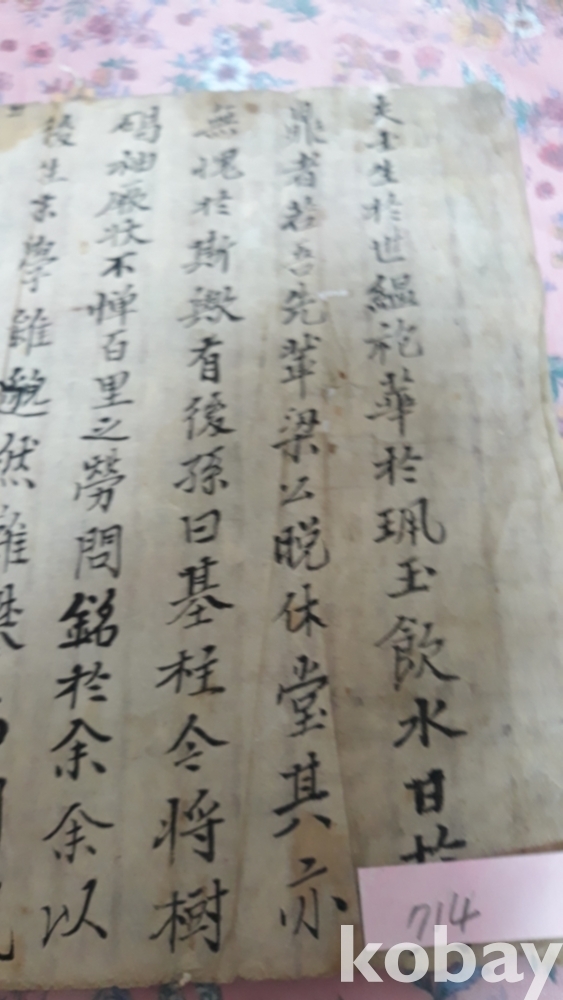 夫士生於世縕袍華於珮玉飮水甘於
鼎者若吾先輩梁公晩休堂其亦
無愧於斯歟有後孫曰基柱今將樹
碣袖厥狀不憚百里之勞問銘於余余以
後生末學雖
然雖
714
kobay